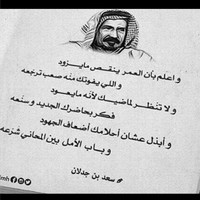 و اعلم بأن العمر ينقص مايزود
و اللي يفوتك منه صعب ترجعه
و لا تنظر لماضيك لأنه مايعود
فكر بحاضرك الجديد وسنعه
و أبذل عشان أحلامك أضعاف الجهود
و باب الأمل بين المحاني شرعه
سعد بن جدلان